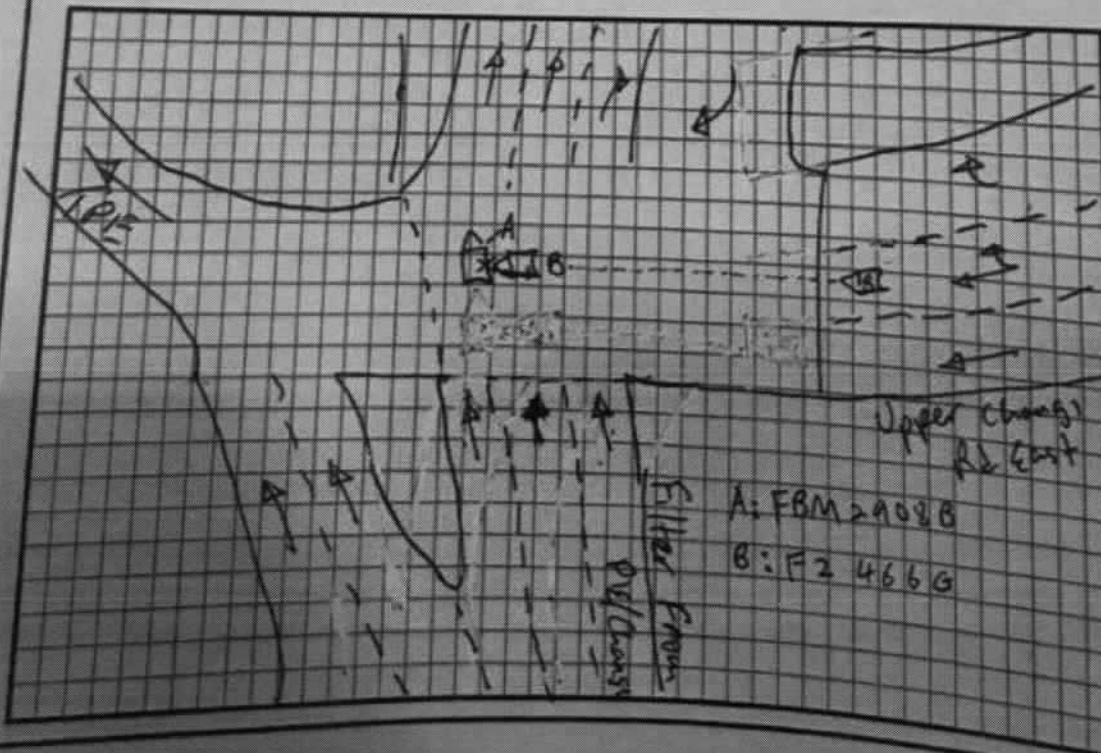 A
B
B
PIE
Upper Changi
Rd East
Filter From
PIE/Changi
A: FBM2908B
B: FZ 466G